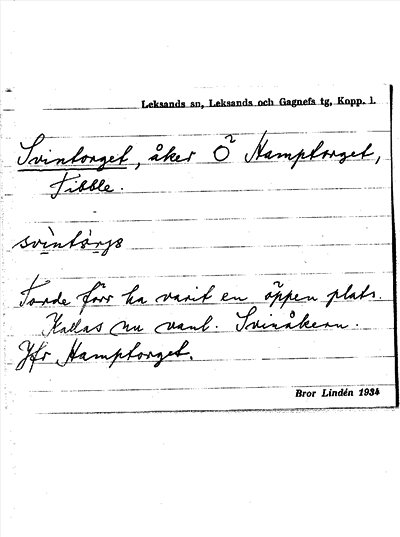 Leksands sn, Leksands och Gagnefs tg, Kopp. l.
Svintorget, åker Ö² Hamptorget,
Tibble.
svìntårjs
Torde förr ha varit en öppen plats.
Kallas nu vanl. Svinåkern.
Jfr Hamptorget.
Bror Lindén 1934